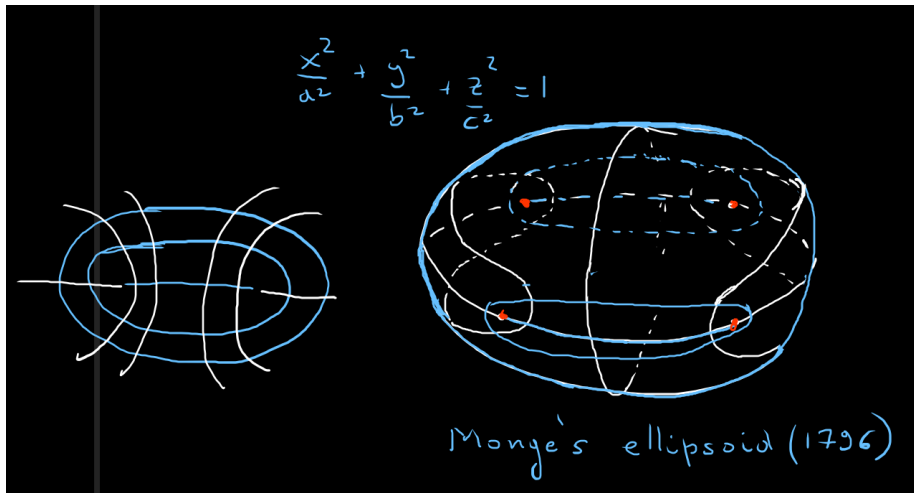 x²/a² + y²/b² + z²/c² = 1
Monge's ellipsoid (1796)